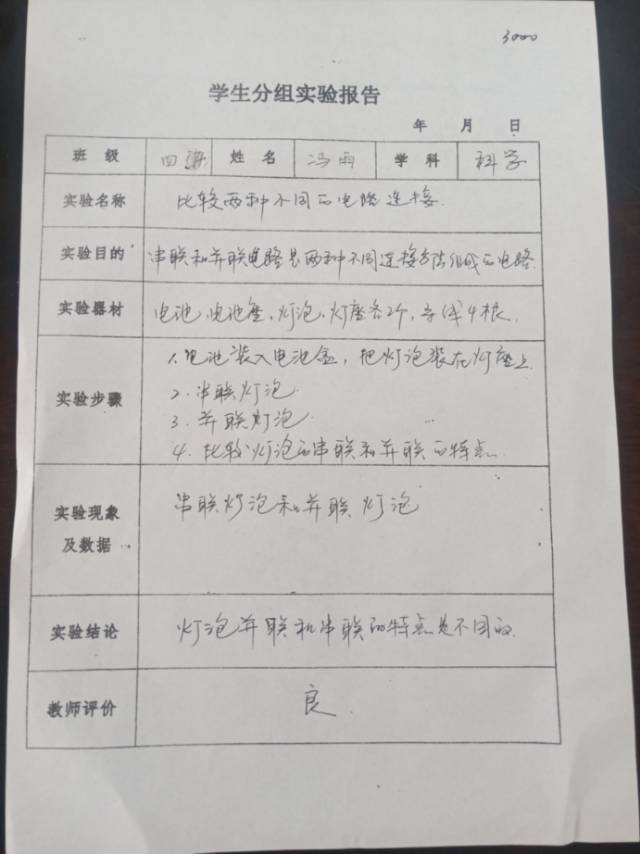 3000
学生分组实验报告
年 月 日
班级 四 姓名 冯雨 学科 科学
实验名称 比较两种不同的电路连接.
实验目的 串联和并联电路是两种不同连接方法组成的电路.
实验器材 电池,电池盒,灯泡,灯座各2个,导线4根.
1.电池装入电池盒,把灯泡装在灯座上
2.串联灯泡
实验步骤
3.并联灯泡
4.比较灯泡的串联和并联的特点.
串联灯泡和并联灯泡
实验现象
及数据
实验结论 灯泡并联和串联的特点是不同的.
教师评价 良.